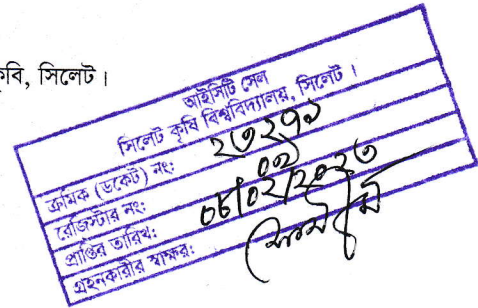 কৃবি, সিলেট।
আইসিটি সেল
সিলেট কৃষি বিশ্ববিদ্যালয়, সিলেট।
ক্রমিক (ডকেট) নং:
রেজিস্টার নং:
প্রাপ্তির তারিখ: ০৮/০২/২০২৩
গ্রহনকারীর স্বাক্ষর: